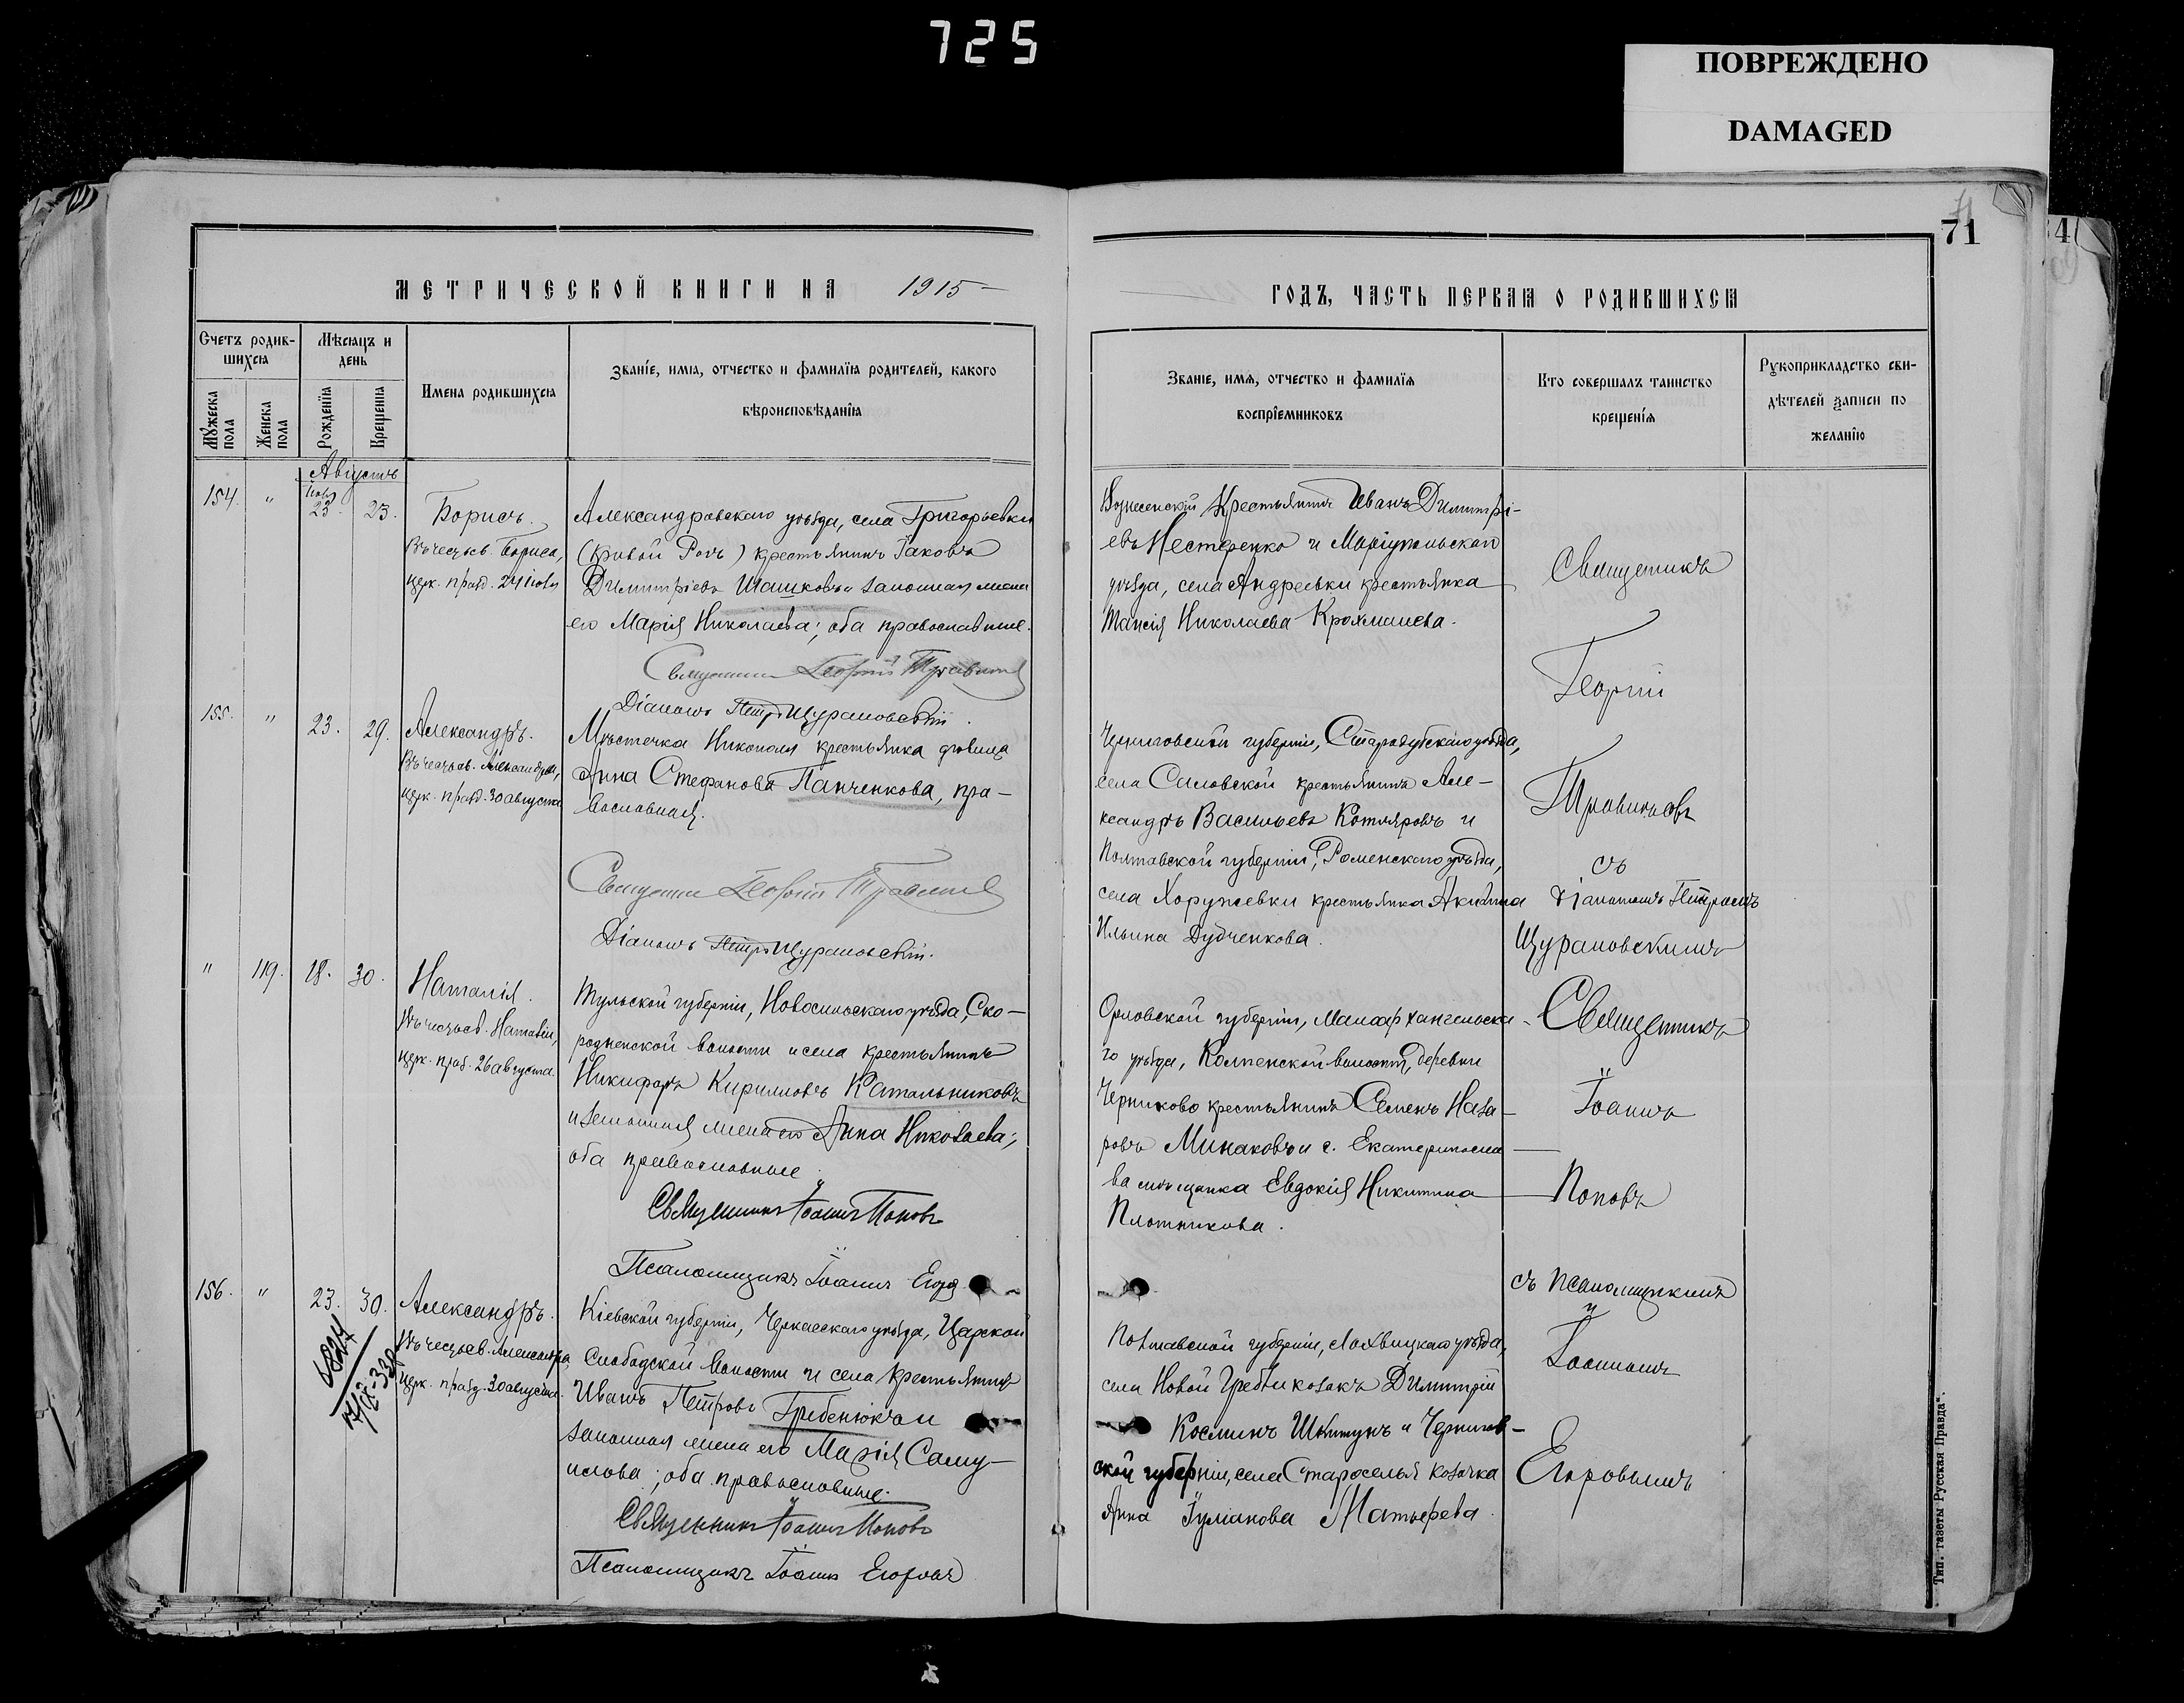 725
ПОВРЕЖДЕНО
DAMAGED
71
71
4
МЕТРИЧЕСКОЙ КНИГИ НА 1915
ГОДЪ, ЧАСТЬ ПЕРВАЯ О РОДИВШИХСЯ
Счетъ родив-
шихся
Мѣсяцъ и
день
Мужеска
пола
Женска
пола
Рожденїя
Крещенїя
Имена родившихся
Званїе, имя, отчество и фамилїя родителей, какого
вѣроисповѣданїя
Званїе, имя, отчество и фамилїя
воспрїемниковъ
Кто совершалъ таинство
крещенїя
Рукоприкладство сви-
дѣтелей записи по
желанїю
Августъ
154. " 23. 23.
Борисъ.
Въ честь св. Бориса,
церк. празд. 24 іюля
Александровскаго уѣзда, села Григорьевки
(Кривой Рогъ) крестьянинъ Іаковъ
Димитріевъ Шашковъ и законная жена
его Марія Николаева; оба православные.
Священникъ Георгій
Діаконъ Петръ Щурановскій.
Вознесенскій Крестьянинъ Иванъ Димитрі-
евъ Нестеренко и Маріупольскаго
уѣзда, села Андреевки крестьянка
Таисія Николаева Крохмалева.
Священникъ
Георгій
Травинъ
съ
діакономъ Петромъ
Щурановскимъ
155. " 23. 29.
Александръ.
Въ честь св. Александра,
церк. празд. 30 августа
Мѣстечка Никополя крестьянка дѣвица
Анна Стефанова Панченкова, пра-
вославная.
Священникъ Георгій
Діаконъ Петръ Щурановскій.
Черниговской губерніи, Стародубскаго уѣзда,
села крестьянинъ Але-
ксандръ Васильевъ Котляровъ и
Полтавской губерніи, Роменскаго уѣзда,
села Хоружевки крестьянка Акилина
Ильина Дубченкова.
" 119. 18. 30.
Наталія.
Въ честь св. Наталіи,
церк. праз. 26 августа.
Тульской губерніи, Новосильскаго уѣзда, Ско-
родненской волости и села крестьянинъ
Никифоръ Кирилловъ Катальниковъ
и законная жена его Анна Николаева;
оба православные.
Священникъ Іоаннъ Поповъ
Псаломщикъ Іоаннъ Егор
Орловской губерніи, Малоархангельска-
го уѣзда, Колпенской волости, деревни
Черниково крестьянинъ Семенъ Наза-
ровъ Минаковъ и г. Екатериносла-
ва мѣщанка Евдокія Никитина
Плотникова.
Священникъ
Іоаннъ
Поповъ
съ псаломщикомъ
Іоанномъ
Егоровымъ
156. " 23. 30.
Александръ.
Въ честь св. Александра,
церк. празд. 30 августа.
6824
Кіевской губерніи, Черкасскаго уѣзда, Царской
Слободской волости и села крестьянинъ
Иванъ Петровъ Гребенюкъ и
законная жена его Марія Саму-
илова; оба православные.
Священникъ Іоаннъ Поповъ
Псаломщикъ Іоаннъ Егоровъ
Полтавской губерніи, Лохвицкаго уѣзда,
села Новой Гребли козакъ Димитрій
Косминъ и Чернигов-
ской губерніи, села Староселья козачка
Анна Іуліанова Матьерева.
Тип. газеты Русская Правда".